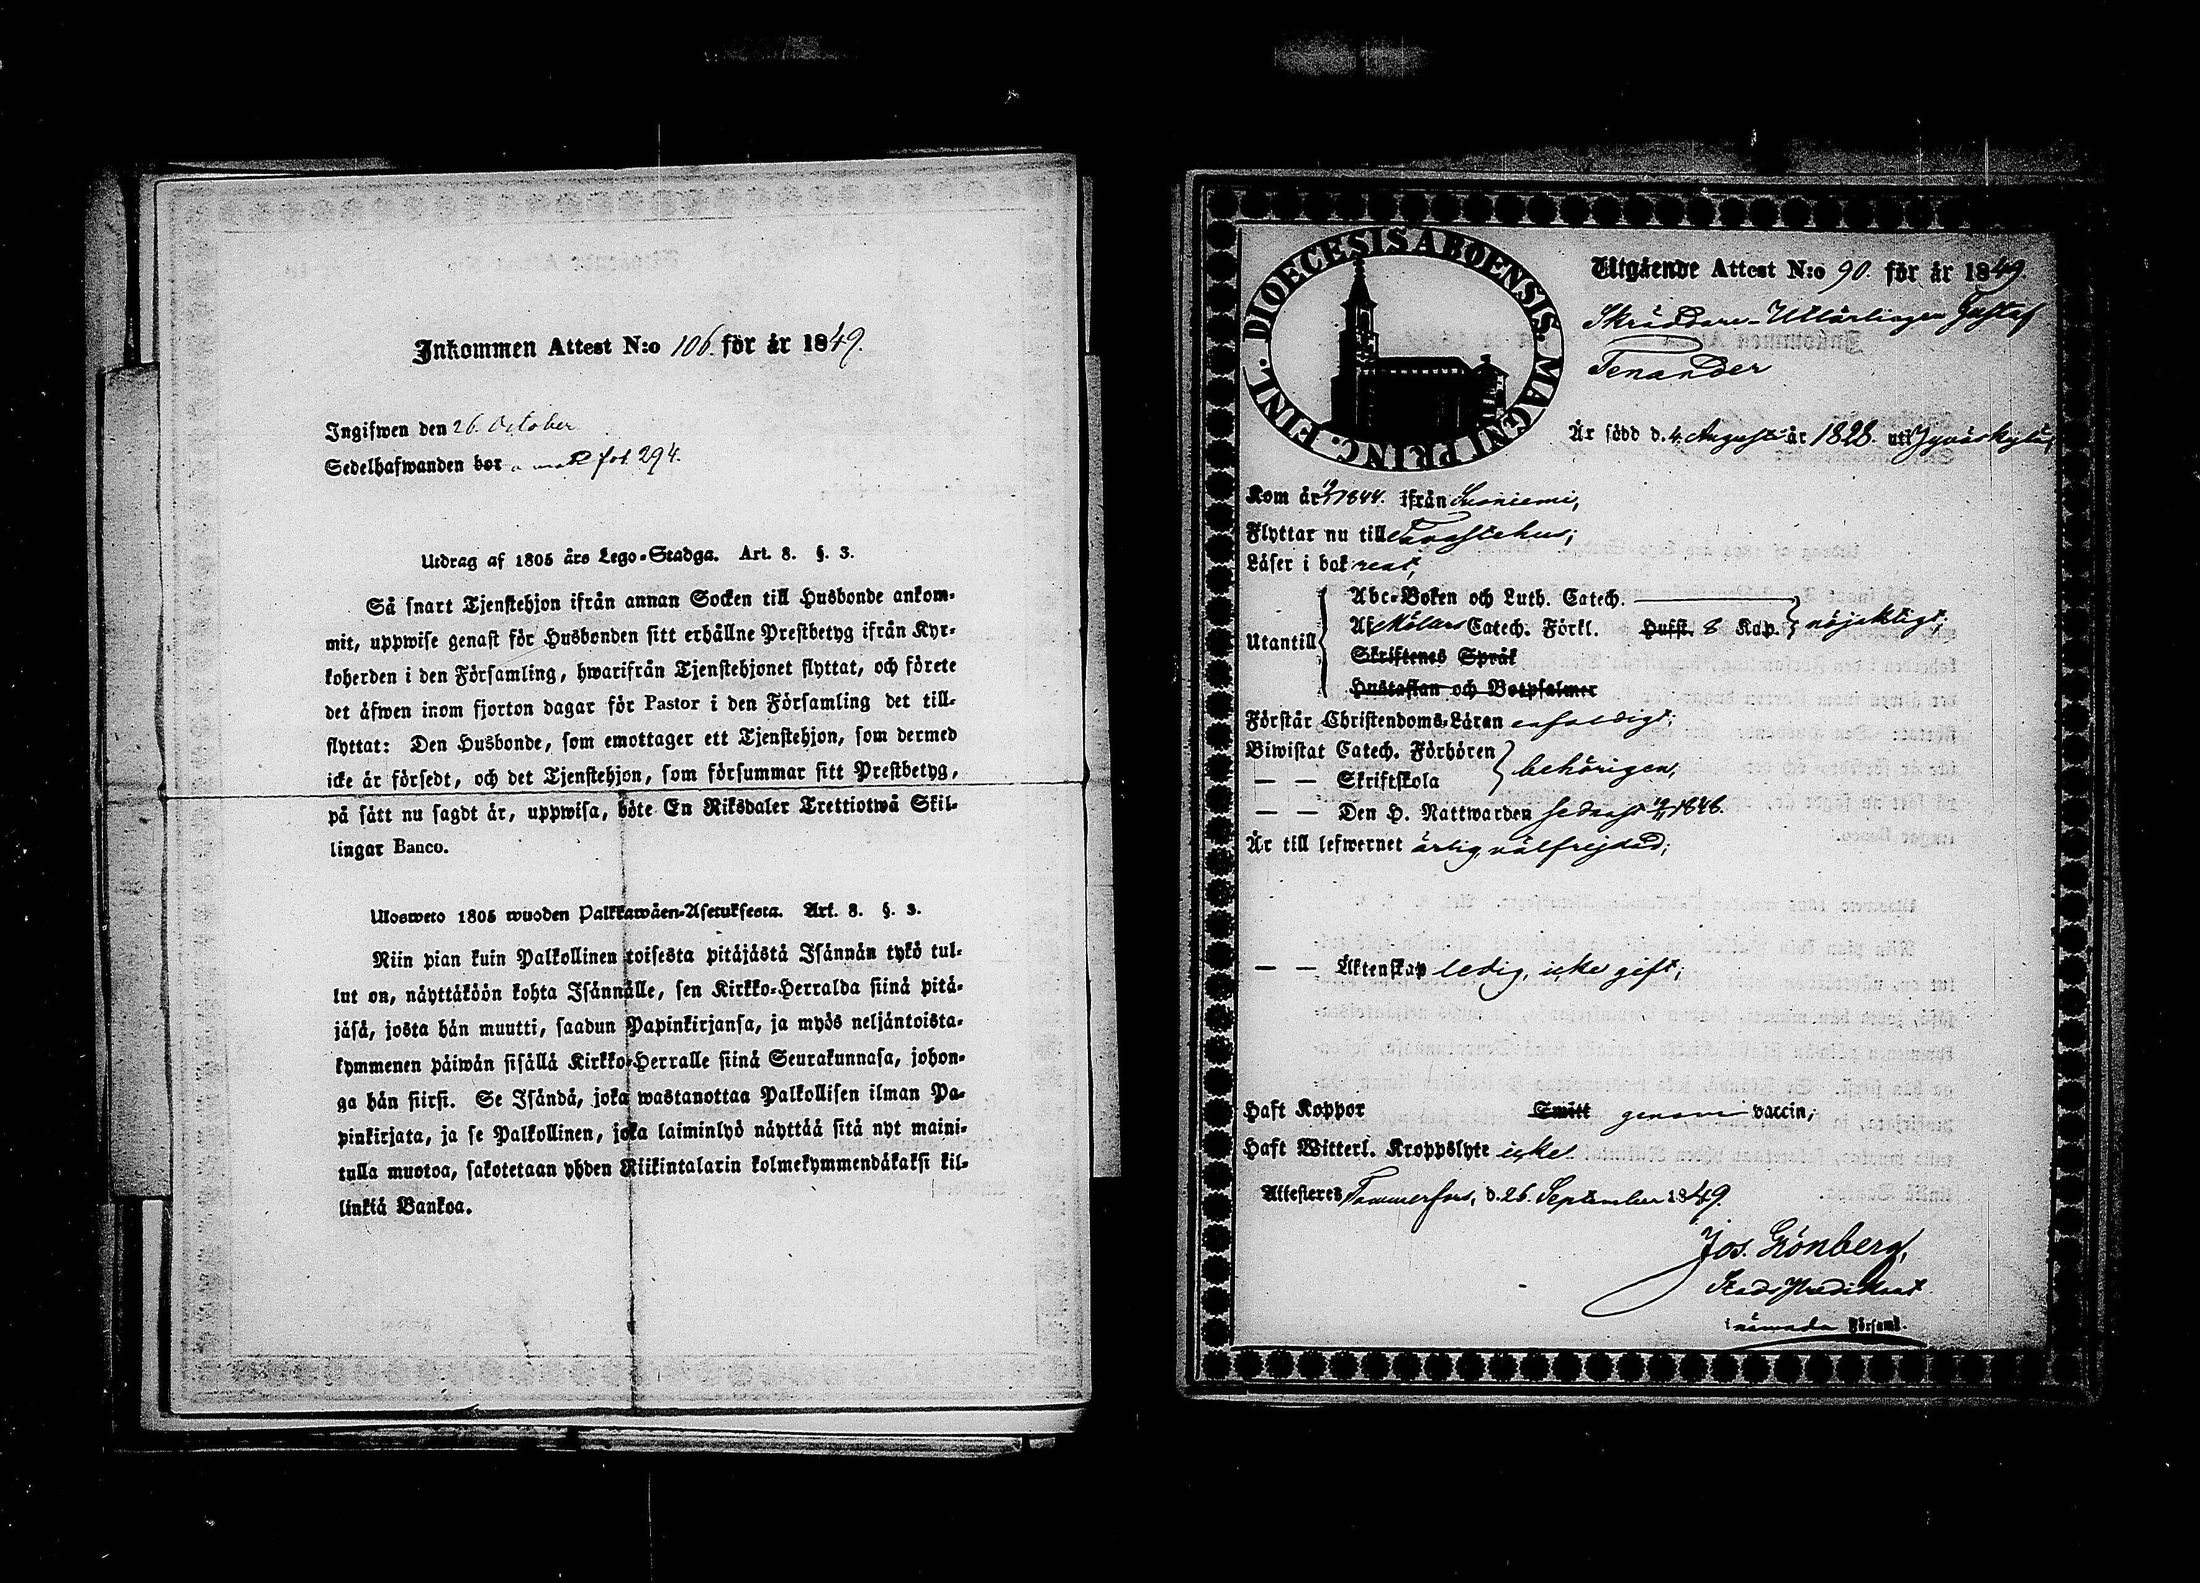 Inkommen Attest N:o 106. för år 1849.
Ingifwen den 26. October
Sedelhafwanden bor fol. 294.
Utdrag af 1805 års Lego-Stadga. Art. 8. §. 3.
Så snart Tjenstehjon ifrån annan Socken till Husbonde ankom-
mit, uppwise genast för Husbonden sitt erhållne Prestbetyg ifrån Kyr-
koherden i den Församling, hwarifrån Tjenstehjonet flyttat, och förete
det äfwen inom fjorton dagar för Pastor i den Församling det till-
flyttat: Den Husbonde, som emottager ett Tjenstehjon, som dermed
icke är försedt, och det Tjenstehjon, som försummar sitt Prestbetyg,
på sätt nu sagdt är, uppwisa, böte En Riksdaler Trettiotwå Skil-
lingar Banco.
Ulosweto 1805 wuoden Palkkawäen-Asetuksesta. Art. 8. §. 3.
Niin pian kuin Palkollinen toisesta pitäjästä Isännän tykö tul-
lut on, näyttäköön kohta Isännälle, sen Kirkko-Herralda siinä pitä-
jäsä, josta hän muutti, saadun Papinkirjansa, ja myös neljäntoista-
kymmenen päiwän sisällä Kirkko-Herralle siinä Seurakunnasa, johon-
ga hän siirsi. Se Isändä, joka wastanottaa Palkollisen ilman Pa-
pinkirjata, ja se Palkollinen, joka laiminlyö näyttää sitä nyt maini-
tulla muotoa, sakotetaan yhden Riikintalarin kolmekymmendäkaksi kil-
linkiä Bankoa.
FINL. DIOECESIS ABOENSIS. MAGNI PRINC.
Utgående Attest N:o 90. för år 1849.
Skräddare-Utlärlingen Gustaf
Tenander
Är född d. 4. Augusti år 1828. uti Jyväskylä,
Kom år 1844. ifrån Kuoniemi,
Flyttar nu till Tavastehus;
Läser i bok rent,
Utantill
Abc-Boken och Luth. Catech.
Af Möllers Catech. Förkl. Hufst. 8 Kap. nöjaktigt;
Skriftenes Språk
Hustaflan och Botpsalmer
Förstår Christendoms-Läran enfaldigt;
Biwistat Catech. Förhören
— — Skriftskola behörigen,
— — Den H. Nattwarden sednast 1848.
Är till lefwernet ärlig, välfrejdad;
— — Äktenskap ledig, icke gift;
Haft Koppor Smitt genom vaccin;
Haft Witterl. Kroppslyte icke.
Attesteres Tammerfors, d. 26. September 1849.
Jos. Grönberg,
StadsPredikant
i nämnda Församl.